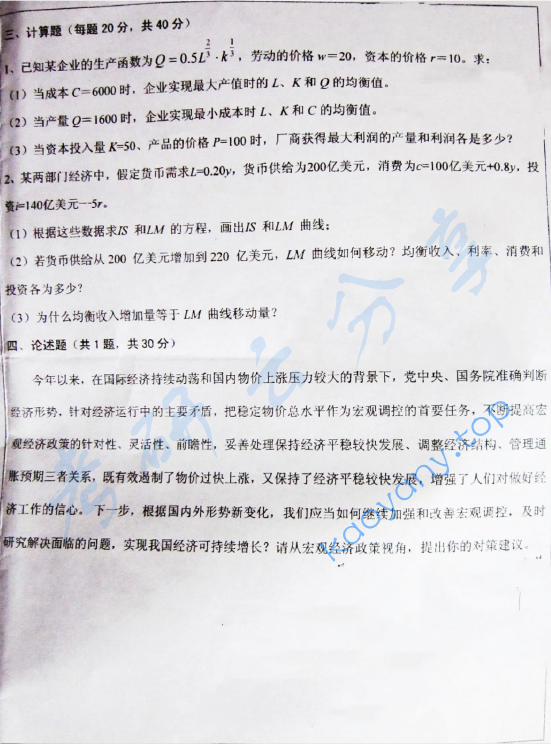 三、计算题（每题 20 分，共 40 分）
1、已知某企业的生产函数为 Q = 0.5L^{2/3} · k^{1/3}，劳动的价格 w=20，资本的价格 r=10。求：
（1）当成本 C=6000 时，企业实现最大产值时的 L、K 和 Q 的均衡值。
（2）当产量 Q=1600 时，企业实现最小成本时 L、K 和 C 的均衡值。
（3）当资本投入量 K=50、产品的价格 P=100 时，厂商获得最大利润的产量和利润各是多少？
2、某两部门经济中，假定货币需求L=0.20y，货币供给为200亿美元，消费为c=100亿美元+0.8y，投
资i=140亿美元—5r。
（1）根据这些数据求IS 和LM 的方程，画出IS 和LM 曲线；
（2）若货币供给从 200 亿美元增加到 220 亿美元，LM 曲线如何移动？均衡收入、利率、消费和
投资各为多少？
（3）为什么均衡收入增加量等于 LM 曲线移动量？
四、论述题（共 1 题，共 30 分）
今年以来，在国际经济持续动荡和国内物价上涨压力较大的背景下，党中央、国务院准确判断
经济形势，针对经济运行中的主要矛盾，把稳定物价总水平作为宏观调控的首要任务，不断提高宏
观经济政策的针对性、灵活性、前瞻性，妥善处理保持经济平稳较快发展、调整经济结构、管理通
胀预期三者关系，既有效遏制了物价过快上涨，又保持了经济平稳较快发展，增强了人们对做好经
济工作的信心。下一步，根据国内外形势新变化，我们应当如何继续加强和改善宏观调控，及时
研究解决面临的问题，实现我国经济可持续增长？请从宏观经济政策视角，提出你的对策建议。
考研云分享
kaoyany.top